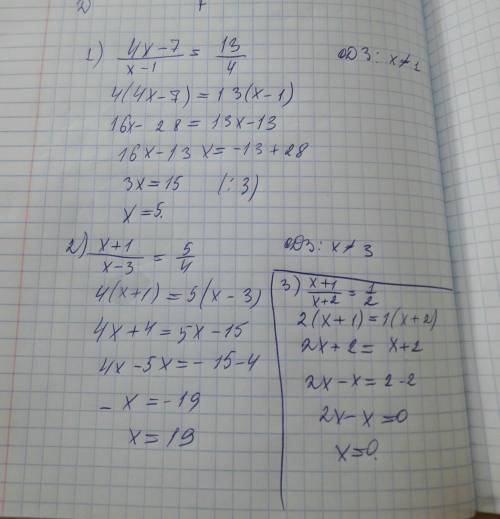 1) (4x-7)/(x-1) = 13/4   ОДЗ: x≠1
4(4x-7)=13(x-1)
16x-28=13x-13
16x-13x=-13+28
3x=15 (:3)
x=5.
2) (x+1)/(x-3) = 5/4   ОДЗ: x≠3
4(x+1)=5(x-3)
4x+4=5x-15
4x-5x=-15-4
-x=-19
x=19
3) (x+1)/(x+2) = 1/2
2(x+1)=1(x+2)
2x+2=x+2
2x-x=2-2
2x-x=0
x=0.